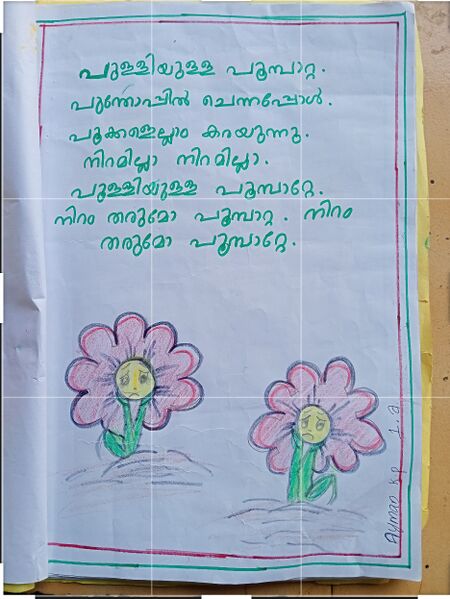 പുള്ളിയുള്ള പൂമ്പാറ്റ.
പൂന്തോപ്പിൽ ചെന്നപ്പോൾ.
പൂക്കളെല്ലാം കരയുന്നു.
നിറമില്ലാ നിറമില്ലാ.
പുള്ളിയുള്ള പൂമ്പാറ്റേ.
നിറം തരുമോ പൂമ്പാറ്റ. നിറം
തരുമോ പൂമ്പാറ്റേ.
Ayman K.P 1.a